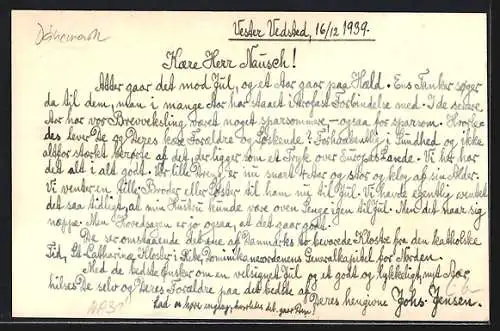 Dänemark
Vester Vedsted, 16/12 1939.
Kære Herr Nausch!
Atter gaar det mod Jul, og et Aar gaar paa Hæld. Ens Tanker søger
da til dem, man i mange Aar har staaet i trofast Forbindelse med. I de senere
Aar har vor Brevveksling været noget sparsommere, - ogsaa for sparsom. Hvorle-
des lever De og Deres kære Forældre og Søskende? Forhaabentlig i Sundhed og ikke
altfor stærkt berørte af det, der ligger som et Tryk over Europas Lande. Vi her har
det alt i alt godt. Vor lille Dreng er nu snart 4 Aar og stor og klog af sin Alder.
Vi venter en lille Broder eller Søster til ham nu til Jul. Vi havde egentlig ventet
det saa tidligt, at min Hustru kunde være oven Senge igen til Jul. Men det naar sig
næppe. Men Hovedsagen er jo ogsaa, at det gaar godt.
De ser omstaaende det ene af Danmarks to bevarede Klostre fra den katholske
Tid, St. Catharinæ Kloster i Ribe, Dominikanerordenens Generalkapitel for Norden.
Med de bedste Ønsker om en velsignet Jul og et godt og lykkeligt nyt Aar
hilses De selv og Deres Forældre paa det bedste af
Deres hengivne Johs. Jensen.
Lad os høre engang, hvorledes det gaar Dem!